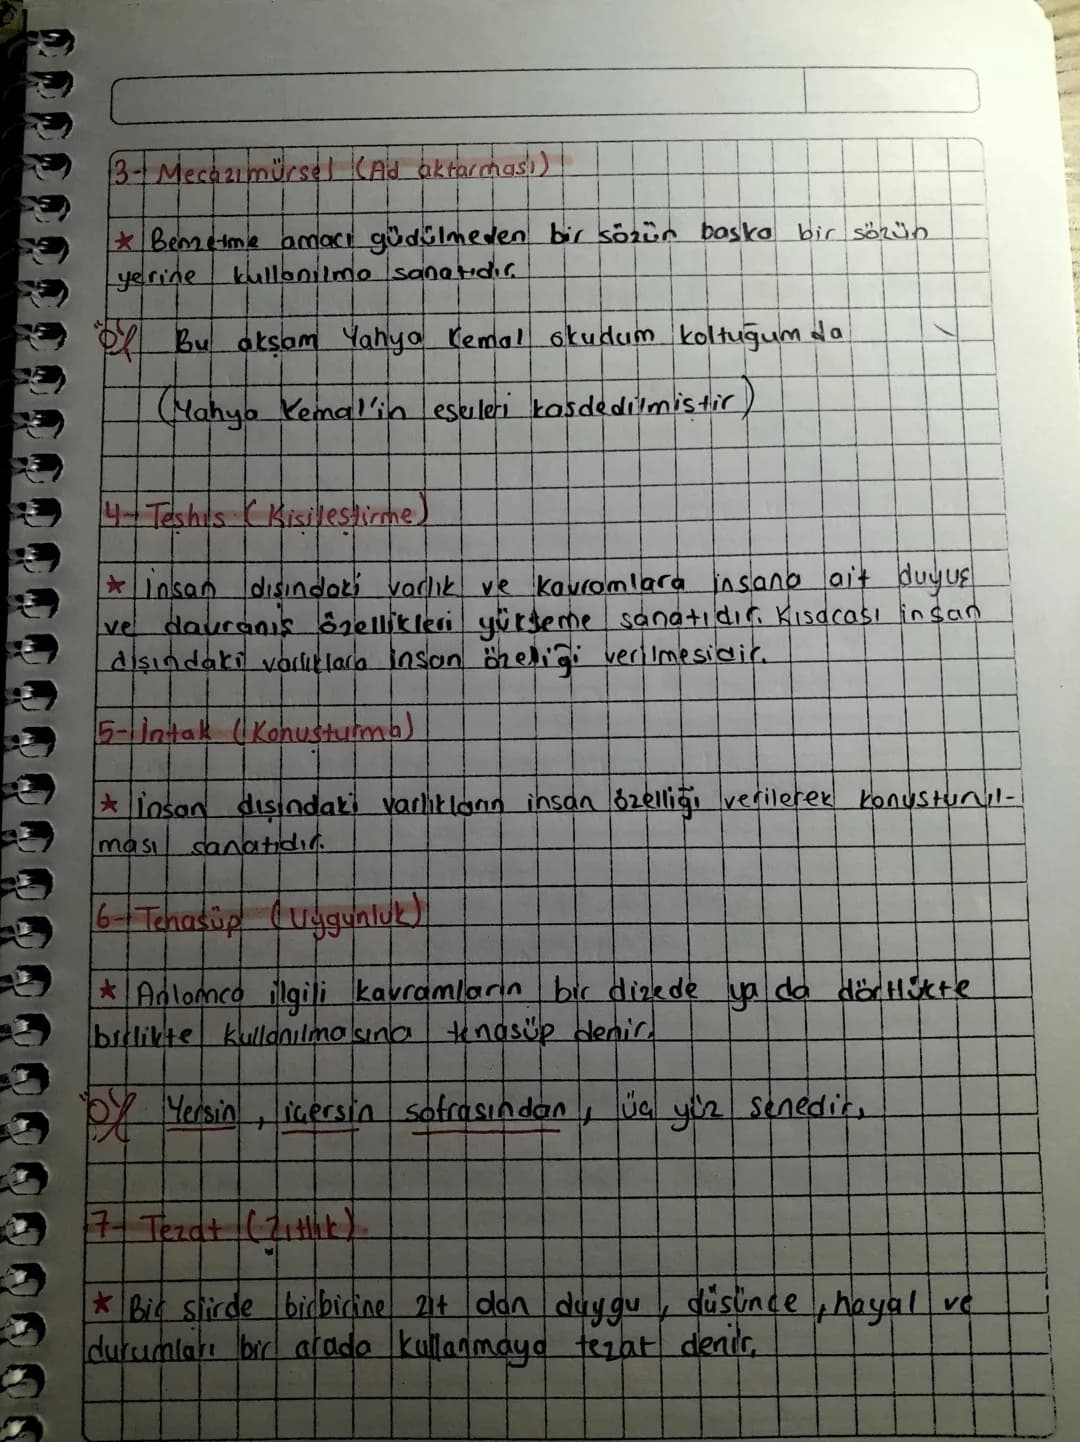 3- Mecazımürsel (Ad aktarması)
* Benzetme amacı güdülmeden bir sözün başka bir sözün
yerine kullanılma sanatıdır.
ör/ Bu akşam Yahya Kemal okudum koltuğumda
(Yahya Kemal'in eserleri kasdedilmiştir)
4- Teşhis (Kişileştirme)
* İnsan dışındaki varlık ve kavramlara insana ait duyuş
ve davranış özellikleri yükleme sanatıdır. Kısacası insan
dışındaki varlıklara insan özeliği verilmesidir.
5- İntak (Konuşturma)
* İnsan dışındaki varlıkların insan özelliği verilerek konuşturul-
ması sanatıdır.
6- Tenasüp (Uygunluk)
* Anlamca ilgili kavramların bir dizede ya da dörtlükte
birlikte kullanılmasına tenasüp denir.
ör/ Yersin, içersin sofrasından, üç yüz senedir.
7- Tezat (Zıtlık)
* Bir şiirde birbirine zıt olan duygu, düşünce, hayal ve
durumları bir arada kullanmaya tezat denir.